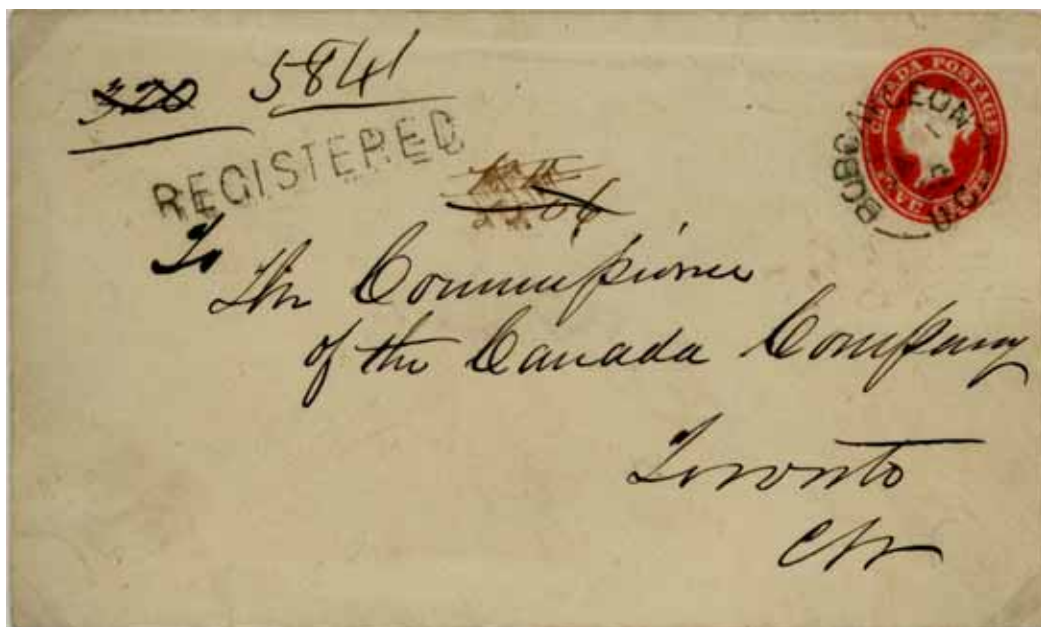 320 5841
REGISTERED
CANADA POSTAGE
FIVE CENTS
BOBCAYGEON
U.C.
To
The Commissioner
of the Canada Company
Toronto
CW